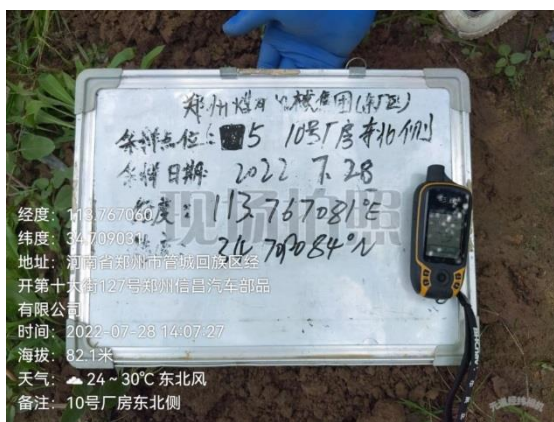 郑州煤矿机械集团(东厂区)
采样点位: 5 10号厂房东北侧
采样日期: 2022 7.28
经度: 113.767081°E
纬度: 34.709084°N
现场拍照
经度: 113.767060
纬度: 34.709031
地址: 河南省郑州市管城回族区经
开第十大街127号郑州信昌汽车部品
有限公司
时间: 2022-07-28 14:07:27
海拔: 82.1米
天气: 24~30℃ 东北风
备注: 10号厂房东北侧